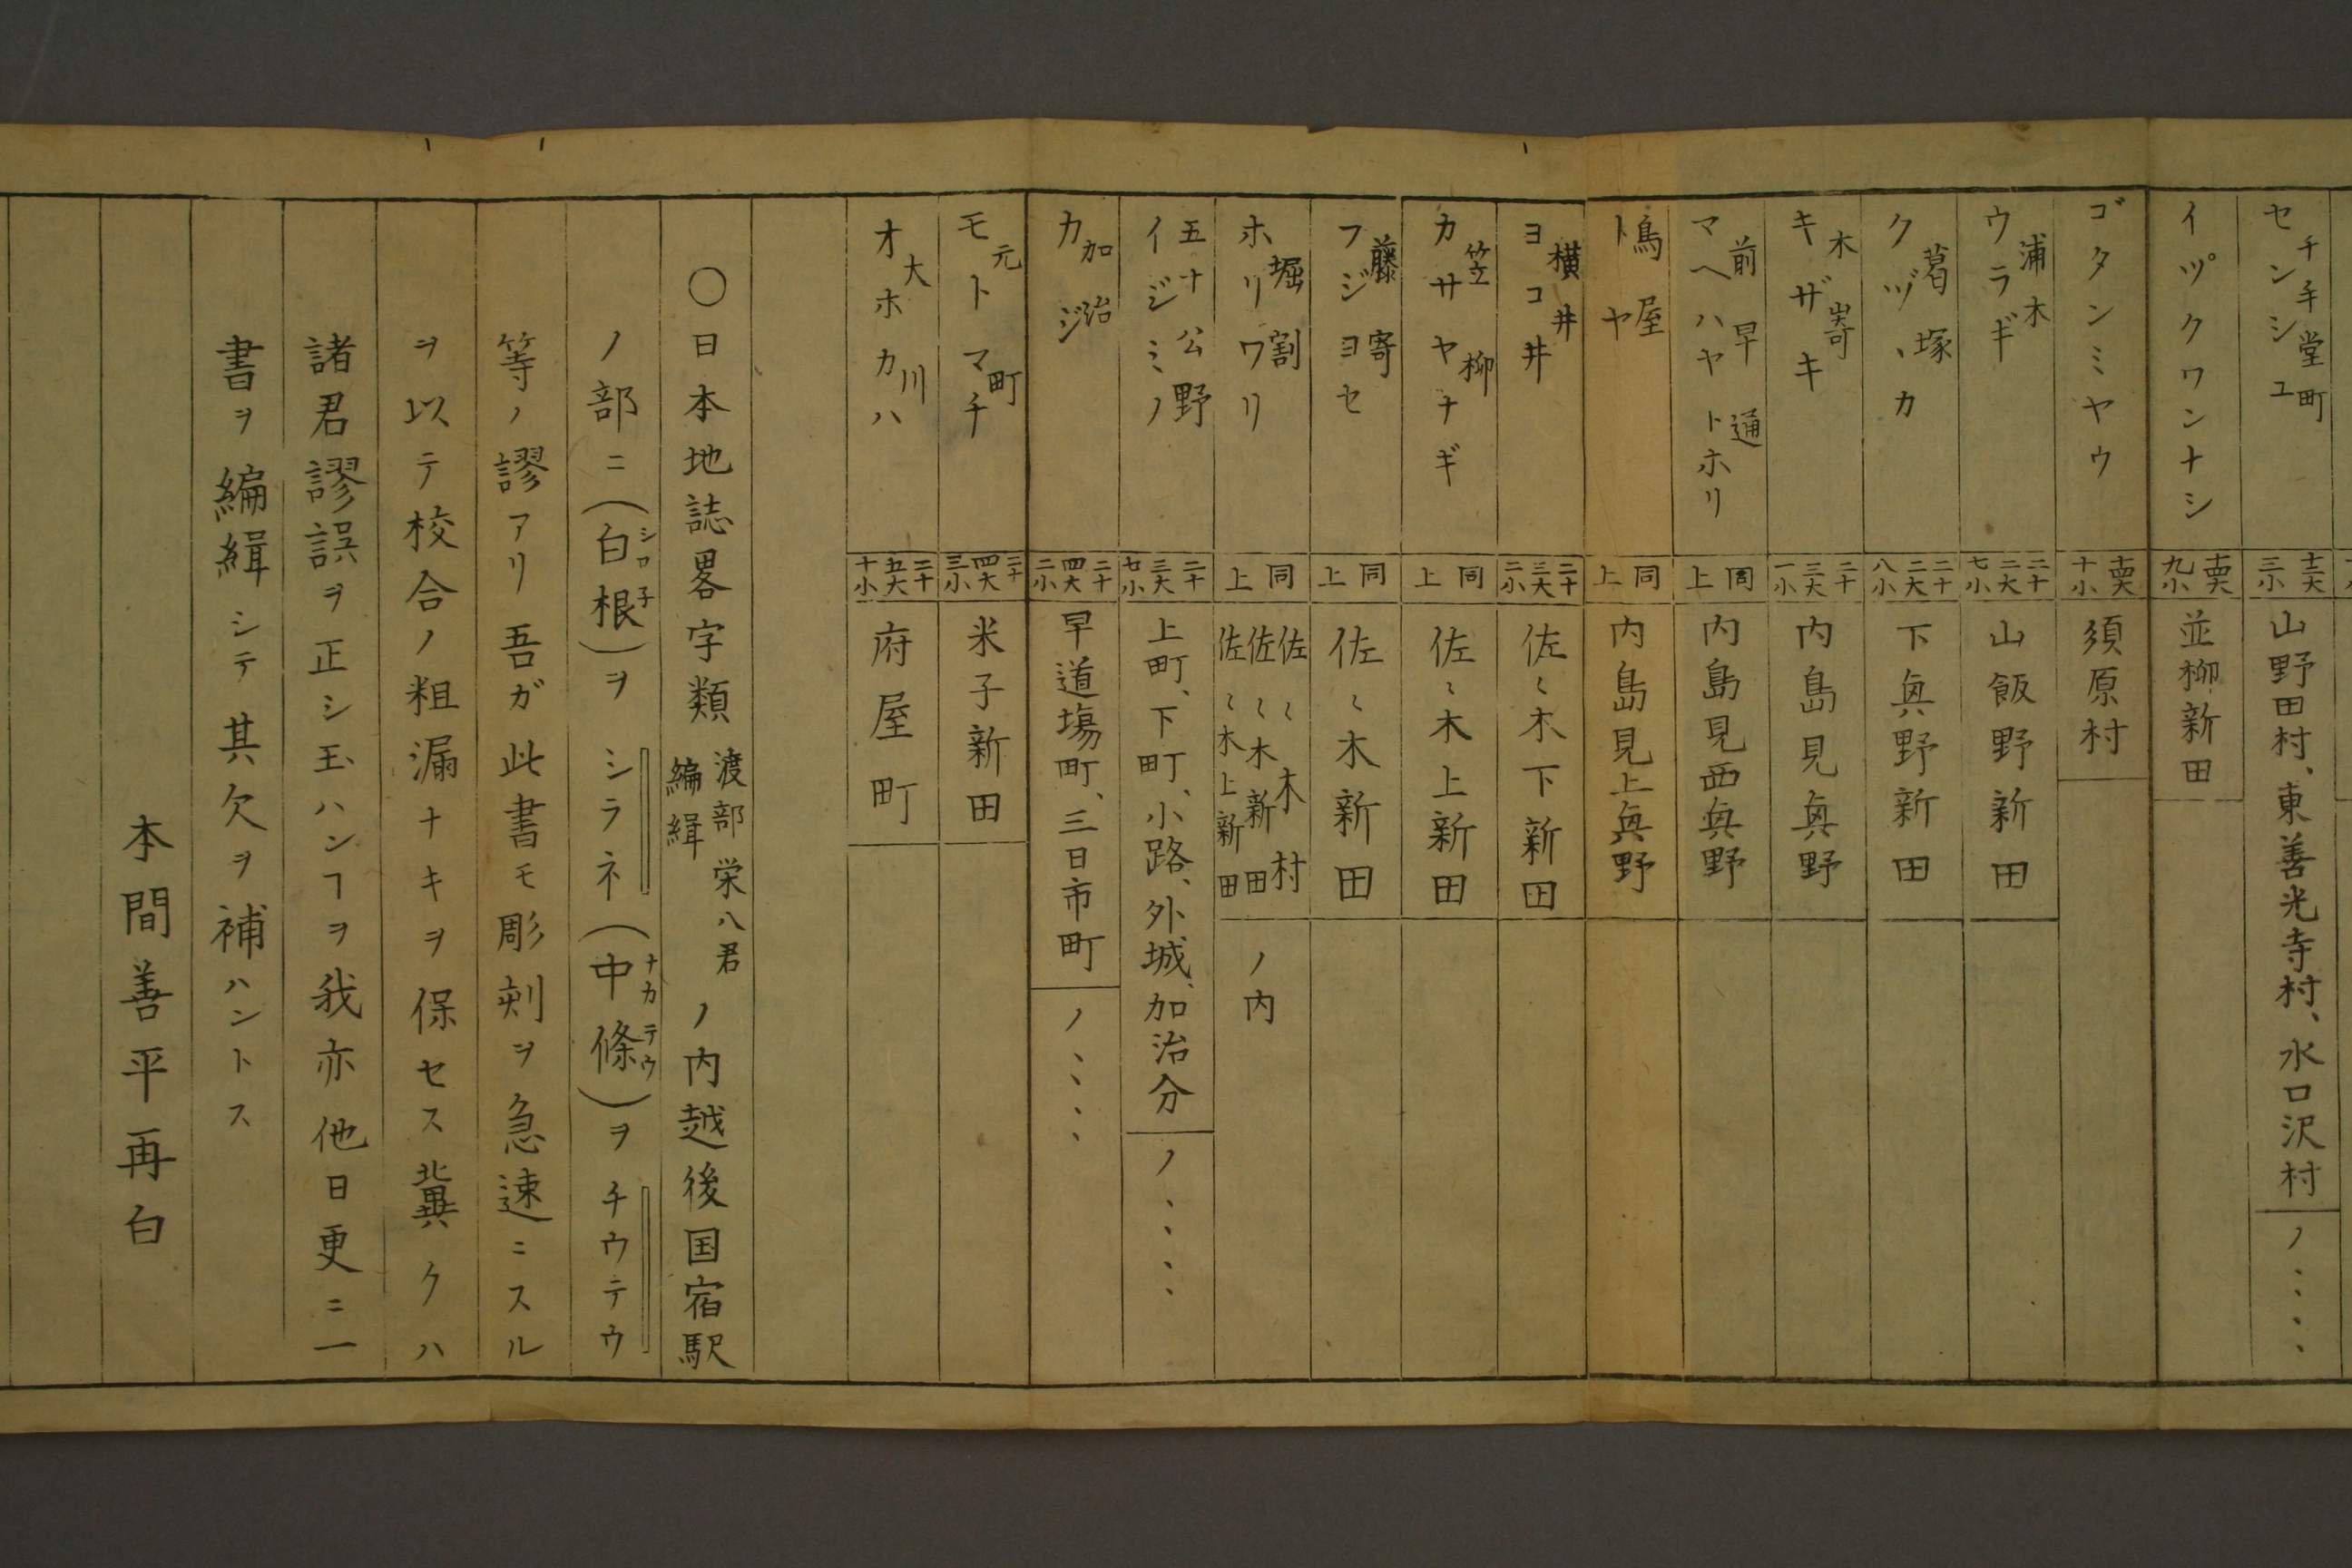 千手堂町 センシユ 十二大三小 山野田村、東善光寺村、水口沢村 ノ、、、、
イヅクワンナシ 十四大九小 並柳新田
ゴタンミヤウ 十四大十小 須原村
浦木 ウラギ 二十二大七小 山飯野新田
葛塚 クヅヽカ 二十二大八小 下奥野新田
木嵜 キザキ 二十三大一小 内島見奥野
前早通 マヘハヤトホリ 同上 内島見西奥野
鳥屋 トヤ 同上 内島見上奥野
横井 ヨコ井 二十三大二小 佐〻木下新田
笠柳 カサヤナギ 同上 佐〻木上新田
藤寄 フジヨセ 同上 佐〻木新田
堀割 ホリワリ 同上 佐〻木村 佐〻木新田 佐〻木上新田 ノ内
五十公野 イジミノ 二十三大七小 上町、下町、小路、外城、加治分 ノ、、、、
加治 カジ 二十四大二小 早道塲町、三日市町 ノ、、、、
元町 モトマチ 二十四大三小 米子新田
大川 オホカハ 二十五大十小 府屋町
〇日本地誌畧字類 渡部栄八君編緝 ノ内越後国宿駅
ノ部ニ(白根シロ子)ヲシラネ(中條ナカテウ)ヲチウテウ
等ノ謬アリ吾ガ此書モ彫刻ヲ急速ニスル
ヲ以テ校合ノ粗漏ナキヲ保セス冀クハ
諸君謬誤ヲ正シ玉ハンヿヲ我亦他日更ニ一
書ヲ編緝シテ其欠ヲ補ハントス
本間善平再白